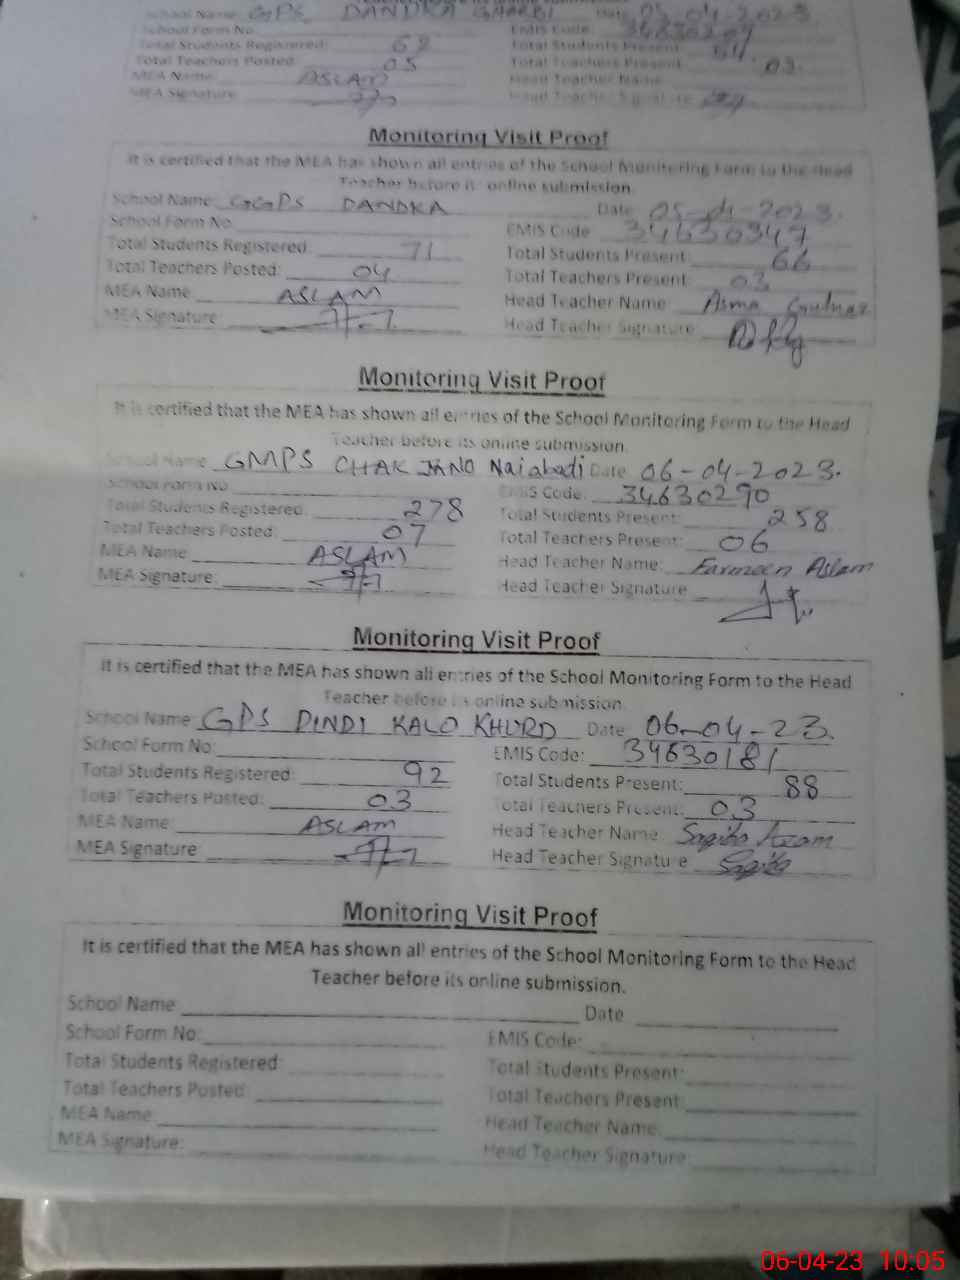 School Name: GPS DANDKA GHARBI Date 05-04-2023
School Form No EMIS Code:
Total Students Registered: Total Students Present:
Total Teachers Posted: 05 Total Teachers Present: 03.
MEA Name: ASLAM Head Teacher Name
MEA Signature Head Teacher Signature
Monitoring Visit Proof
It is certified that the MEA has shown all entries of the School Monitoring Form to the Head
Teacher before its online submission.
School Name: GGPS DANDKA Date 05-04-2023.
School Form No. EMIS Code 34630347
Total Students Registered 71 Total Students Present: 66
Total Teachers Posted: 04 Total Teachers Present: 03
MEA Name ASLAM Head Teacher Name Asma Gulnaz
MEA Signature Head Teacher Signature
Monitoring Visit Proof
It is certified that the MEA has shown all entries of the School Monitoring Form to the Head
Teacher before its online submission.
School Name GMPS CHAK JANO Naiabadi Date 06-04-2023.
School Form No EMIS Code: 34630290
Total Students Registered: 278 Total Students Present: 258
Total Teachers Posted: 07 Total Teachers Present: 06
MEA Name ASLAM Head Teacher Name: Farmeen Aslam
MEA Signature: Head Teacher Signature
Monitoring Visit Proof
It is certified that the MEA has shown all entries of the School Monitoring Form to the Head
Teacher before its online submission.
School Name: GPS DINDI KALO KHURD Date 06-04-23.
School Form No: EMIS Code: 34630181
Total Students Registered: 92 Total Students Present: 88
Total Teachers Posted: 03 Total Teachers Present: 03
MEA Name: ASLAM Head Teacher Name: Azam
MEA Signature Head Teacher Signature
Monitoring Visit Proof
It is certified that the MEA has shown all entries of the School Monitoring Form to the Head
Teacher before its online submission.
School Name Date
School Form No: EMIS Code:
Total Students Registered: Total Students Present:
Total Teachers Posted: Total Teachers Present:
MEA Name Head Teacher Name:
MEA Signature: Head Teacher Signature:
06-04-23 10:05